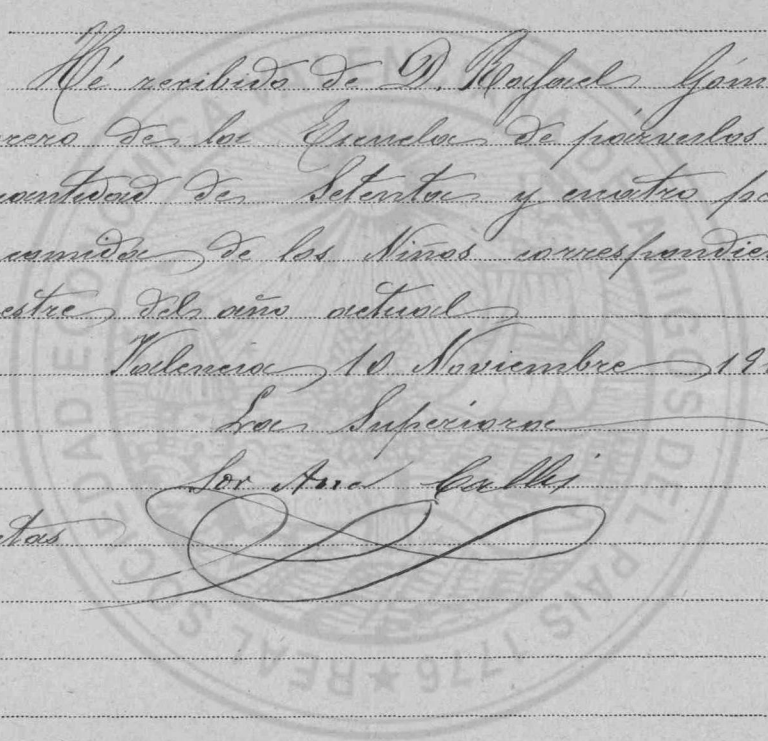 Hé recibido de D. Rafael Góm
rero de la Escuela de párvulos
cantidad de Setenta y cuatro pe
comida de los Niños correspondien
estre del año actual
Valencia 10 Noviembre 19
La Superiora
Sor Ana
etas
REAL SOCIEDAD ECONOMICA VALENCIANA DE AMIGOS DEL PAIS 1776